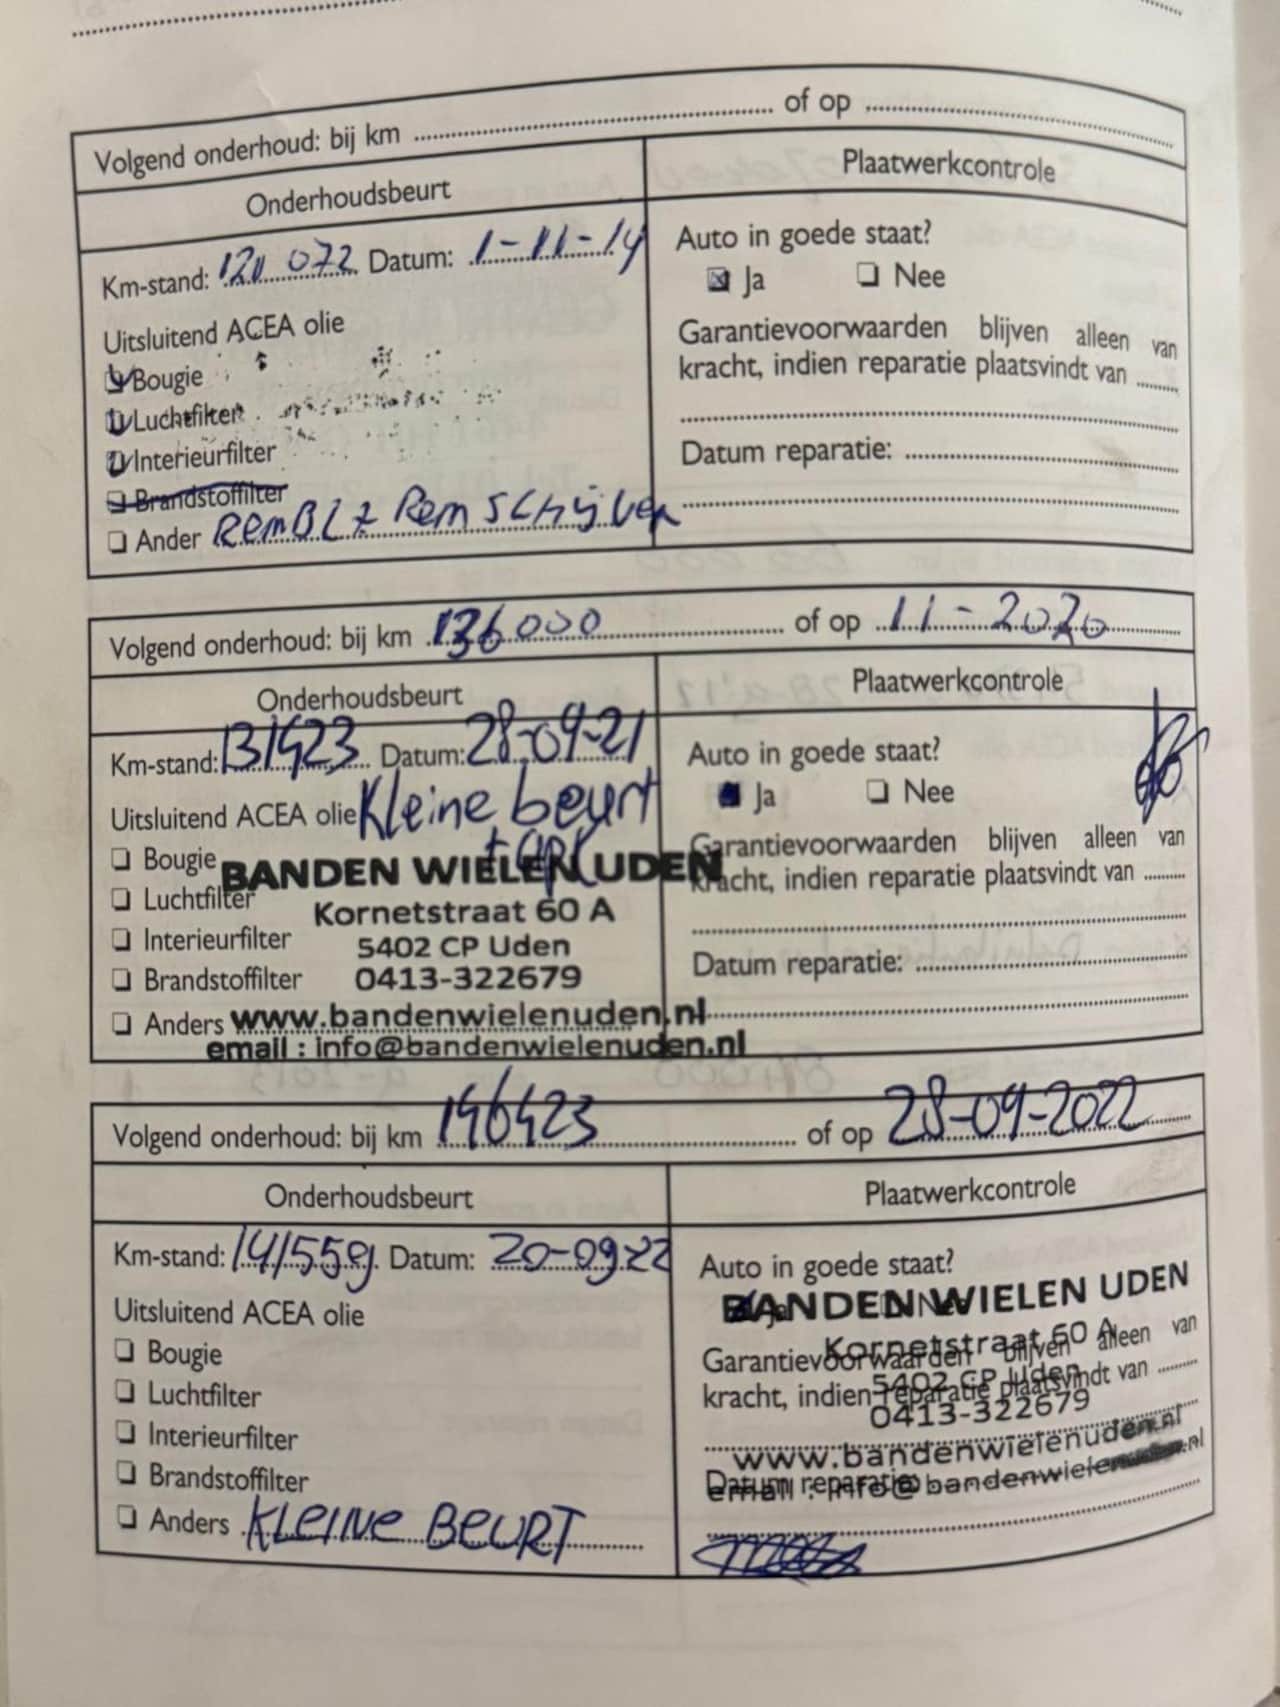 Volgend onderhoud: bij km ........ of op ........
Onderhoudsbeurt
Plaatwerkcontrole
Km-stand: 121 072 Datum: 1-11-14
Uitsluitend ACEA olie
Bougie
Luchtfilter
Interieurfilter
Brandstoffilter
Ander RemBL + Rem schijven
Auto in goede staat?
Ja Nee
Garantievoorwaarden blijven alleen van
kracht, indien reparatie plaatsvindt van ........
Datum reparatie: ........
Volgend onderhoud: bij km 136000 of op 11-2020
Onderhoudsbeurt
Plaatwerkcontrole
Km-stand: 131423 Datum: 28-09-21
Uitsluitend ACEA olie Kleine beurt
+ apk
Bougie
Luchtfilter
Interieurfilter
Brandstoffilter
Anders
BANDEN WIELEN UDEN
Kornetstraat 60 A
5402 CP Uden
0413-322679
www.bandenwielenuden.nl
email : info@bandenwielenuden.nl
Auto in goede staat?
Ja Nee
Garantievoorwaarden blijven alleen van
kracht, indien reparatie plaatsvindt van ........
Datum reparatie: ........
Volgend onderhoud: bij km 146423 of op 28-09-2022
Onderhoudsbeurt
Plaatwerkcontrole
Km-stand: 141559 Datum: 20-09-22
Uitsluitend ACEA olie
Bougie
Luchtfilter
Interieurfilter
Brandstoffilter
Anders KLEINE BEURT
Auto in goede staat?
Ja Nee
Garantievoorwaarden blijven alleen van
kracht, indien reparatie plaatsvindt van ........
Datum reparatie:
BANDEN WIELEN UDEN
Kornetstraat 60 A
5402 CP Uden
0413-322679
www.bandenwielenuden.nl
email : info@bandenwielenuden.nl